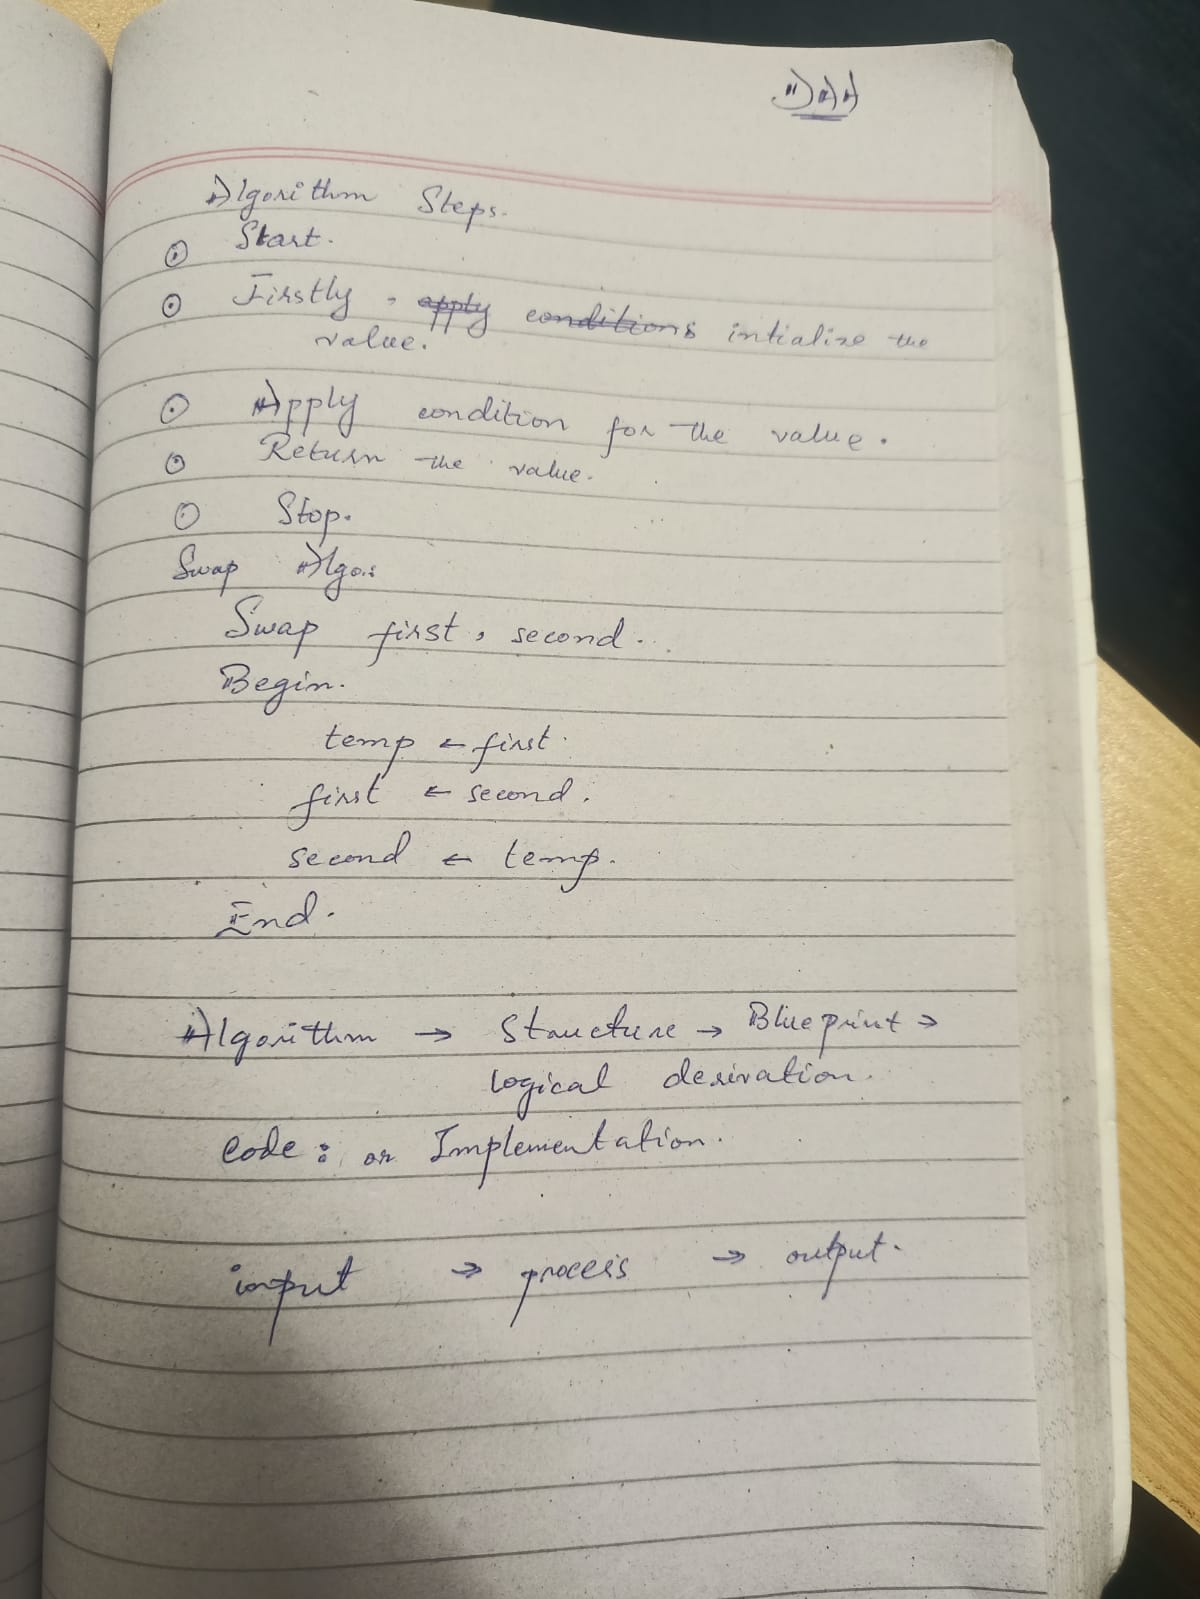 DAA
Algorithm Steps.
Start.
Firstly, apply conditions intialize the
value.
Apply condition for the value.
Return the value.
Stop.
Swap Algo:
Swap first, second.
Begin.
temp ← first.
first ← second.
second ← temp.
End.
Algorithm → Structure → Blueprint →
logical derivation.
Code: or Implementation.
input → process → output.